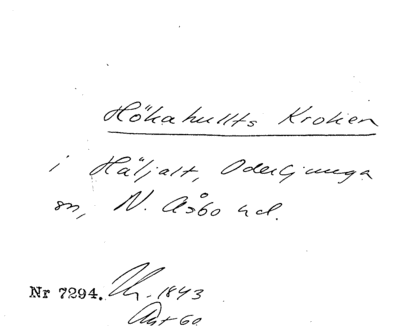 Hökahullts Kroken
i Häljalt, Oderljunga
sn, N. Åsbo hd.
Nr 7294. 1843